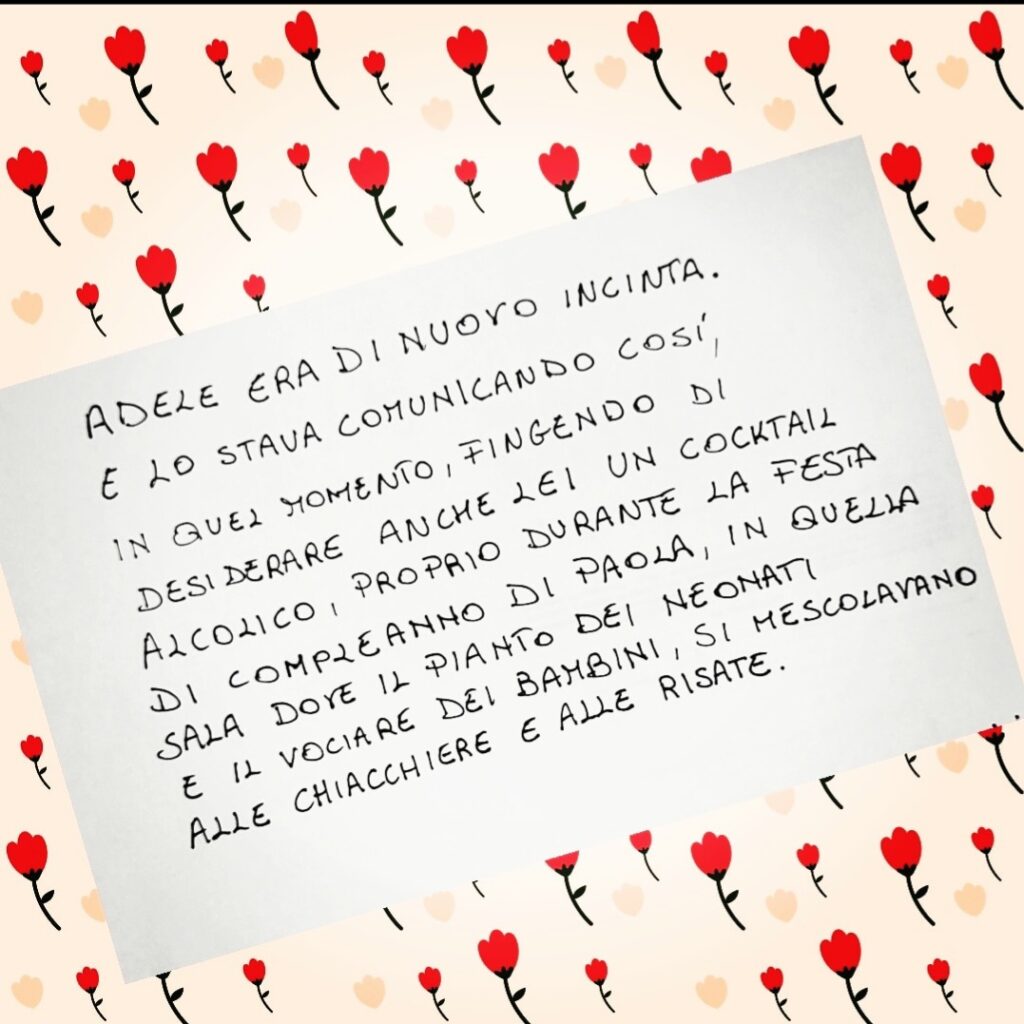 ADELE ERA DI NUOVO INCINTA.
E LO STAVA COMUNICANDO COSÍ,
IN QUEL MOMENTO, FINGENDO DI
DESIDERARE ANCHE LEI UN COCKTAIL
ALCOLICO, PROPRIO DURANTE LA FESTA
DI COMPLEANNO DI PAOLA, IN QUELLA
SALA DOVE IL PIANTO DEI NEONATI
E IL VOCIARE DEI BAMBINI, SI MESCOLAVANO
ALLE CHIACCHIERE E ALLE RISATE.